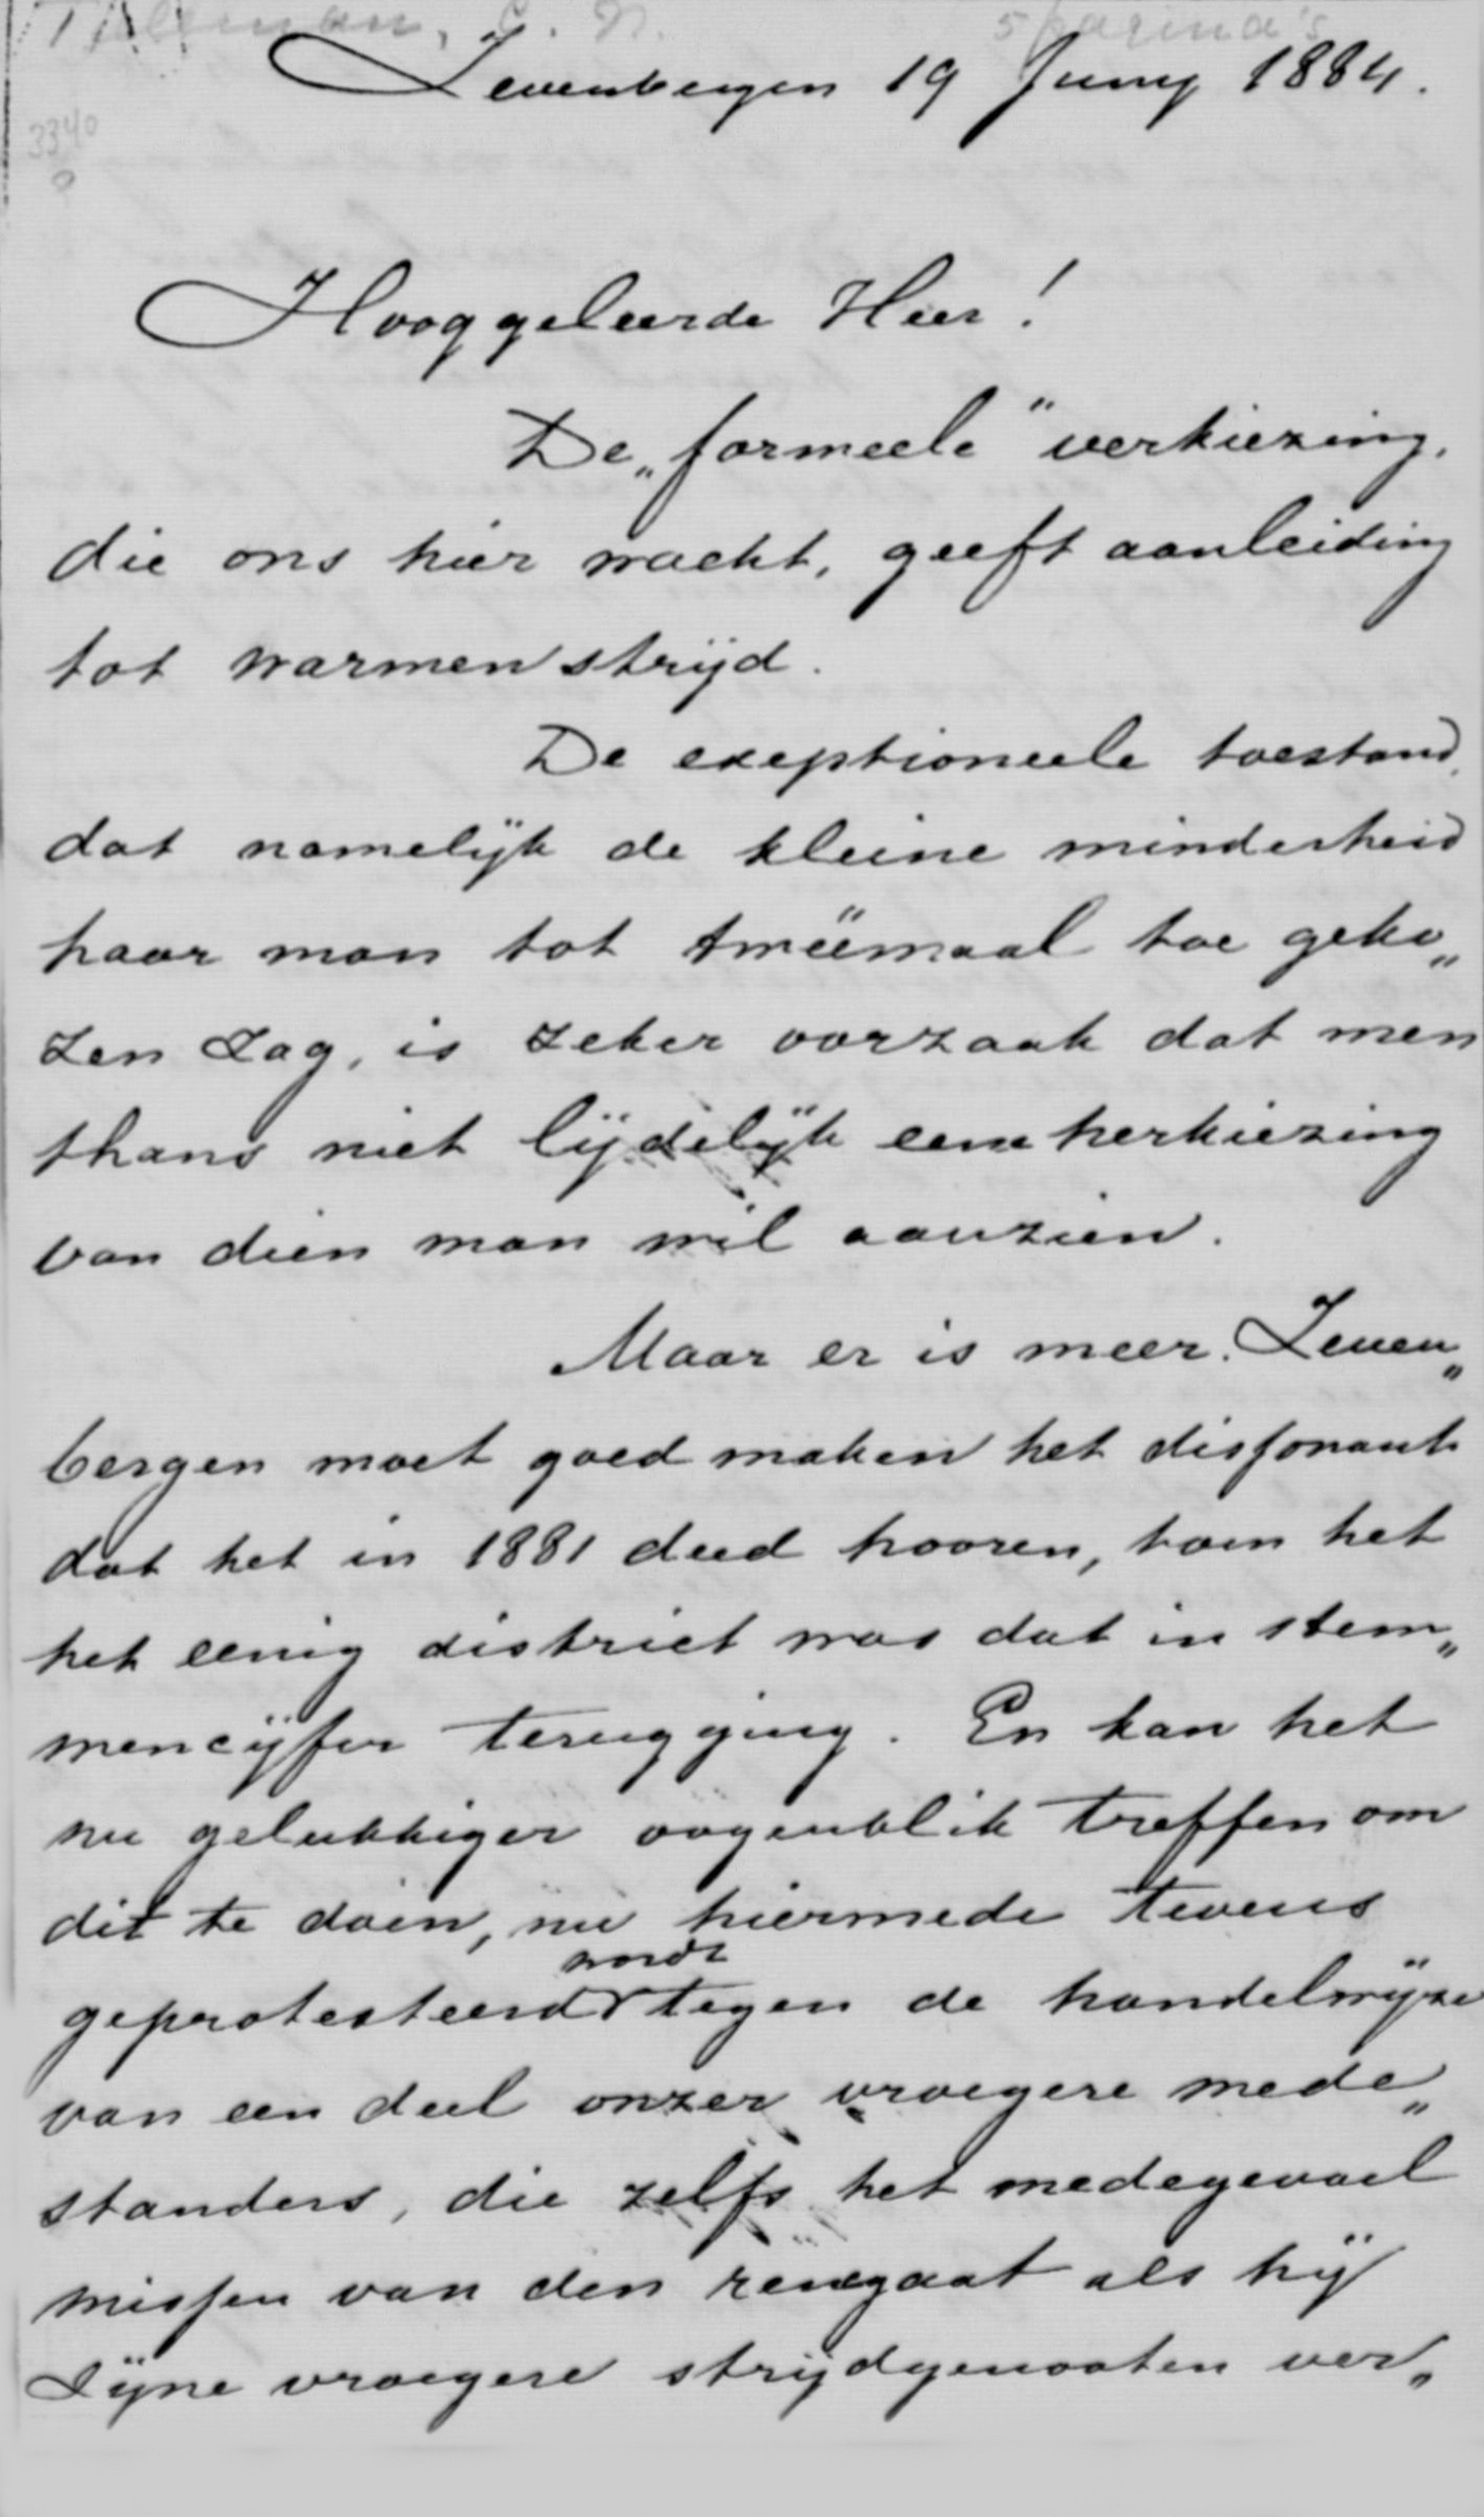 5 pagina's
Zevenbergen 19 Juny 1884.
3340
Hooggeleerde Heer!
De „formeele" verkiezing,
die ons hier wacht, geeft aanleiding
tot warmen strijd.
De exeptioneele toestand,
dat namelijk de kleine minderheid
haar man tot tweëmaal toe geko„
zen zag, is zeker oorzaak dat men
thans niet lijdelijk eene herkiezing
van dien man wil aanzien.
Maar er is meer. Zeven„
bergen moet goed maken het dissonant
dat het in 1881 deed hooren, toen het
het eenig district was dat in stem„
mencijfer terugging. En kan het
nu gelukkiger oogenblik treffen om
dit te doen, nu hiermede tevens
wordt
geprotesteerd tegen de handelwijze
van een deel onzer vroegere mede„
standers, die zelfs het medegevoel
missen van den renegaat als hij
zijne vroegere strijdgenooten ver„